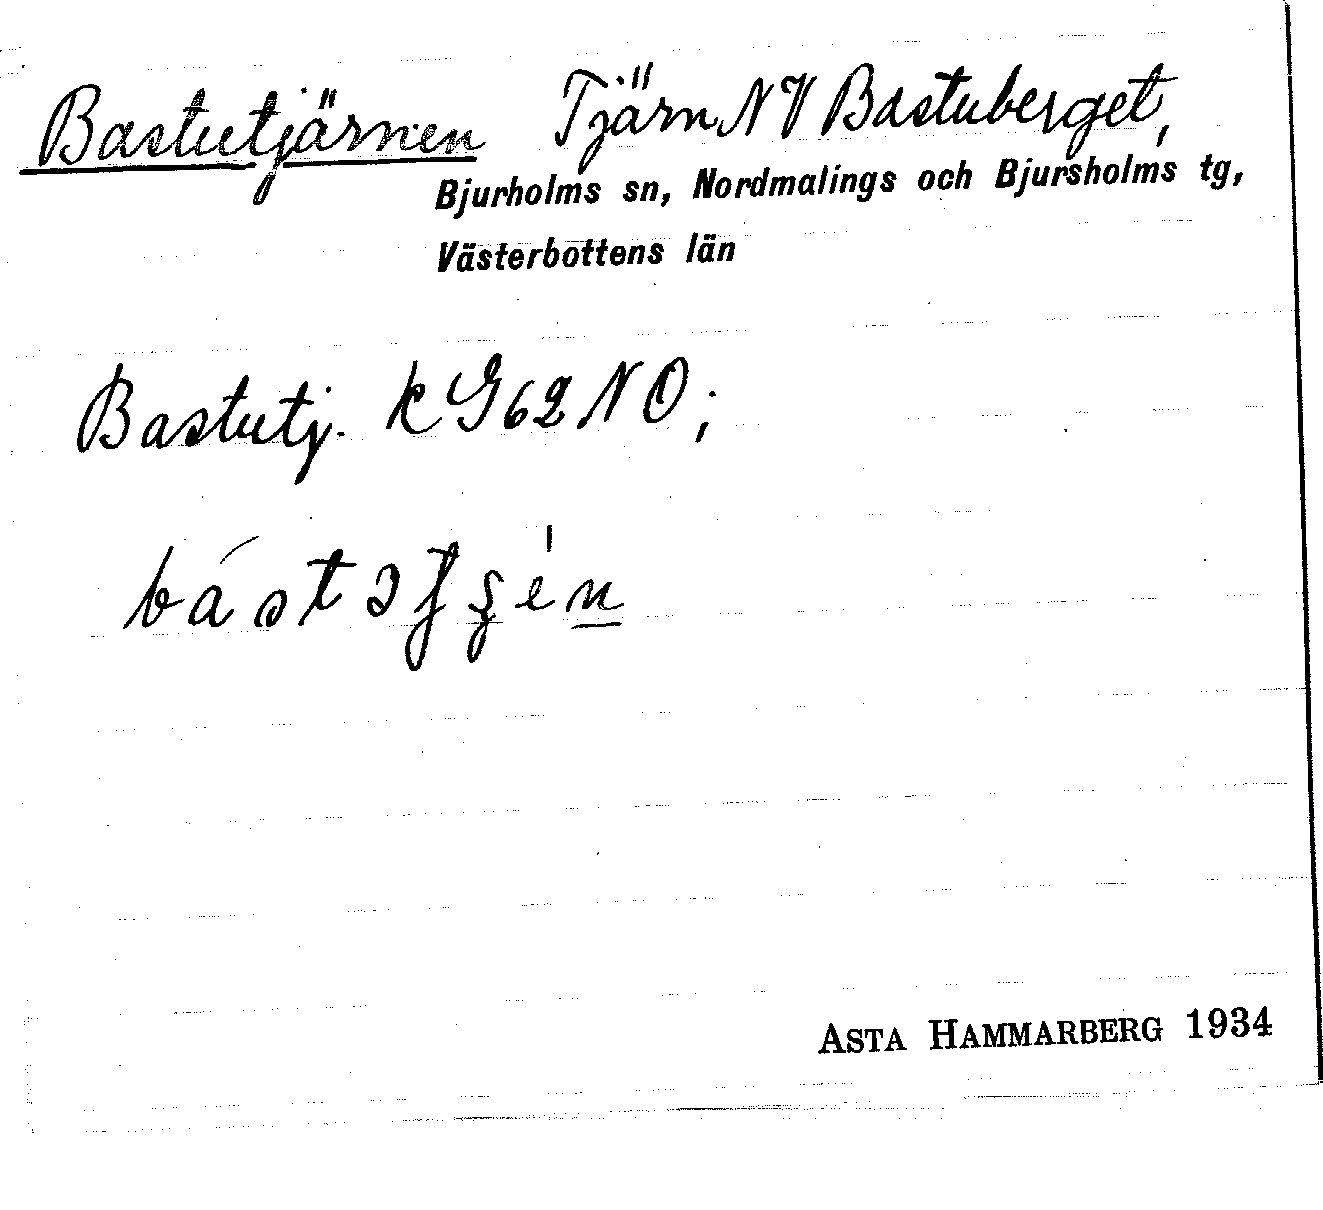 Bastutjärnen Tjärn NV Bastuberget,
Bjurholms sn, Nordmalings och Bjursholms tg,
Västerbottens län
Bastutj. k G62 NO;
ASTA HAMMARBERG 1934